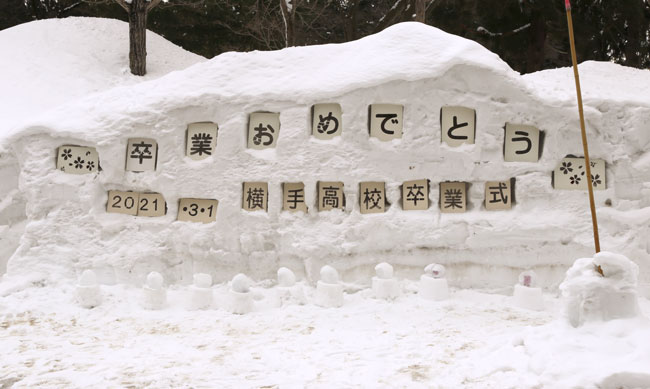 卒業おめでとう
2021・3・1 横手高校卒業式